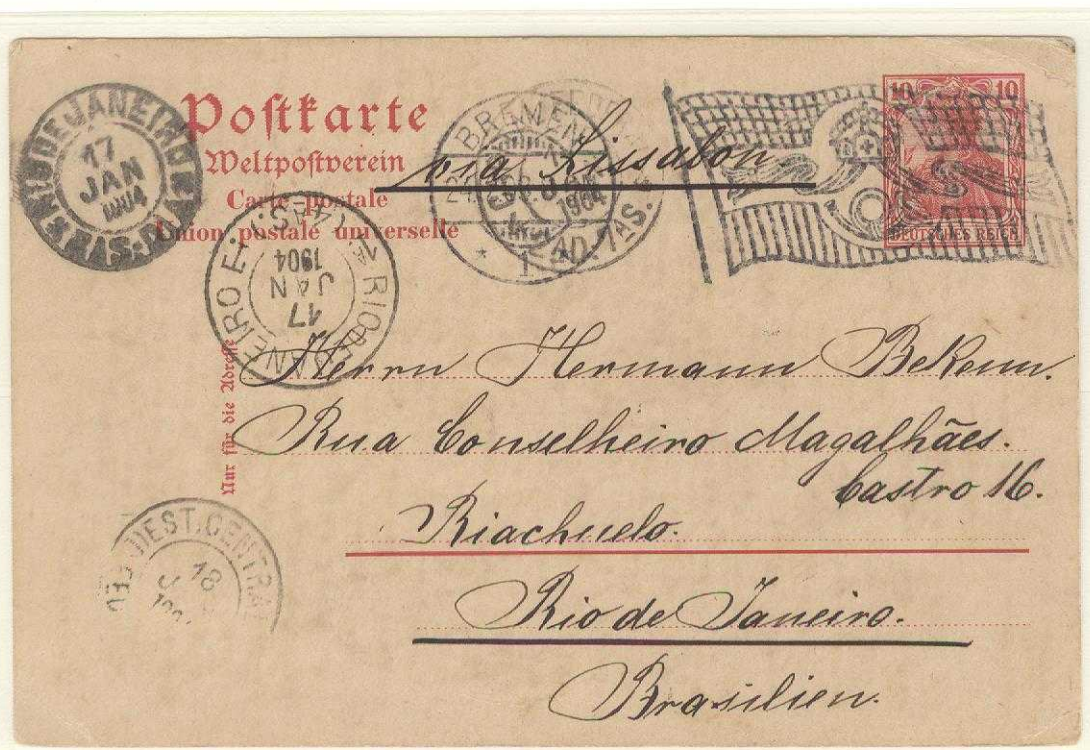 Postkarte
Weltpostverein
Carte postale
Union postale universelle
via Lissabon
10 10
DEUTSCHES REICH
BREMEN
1904
17
JAN
RIO DE JANEIRO
17
JAN
1904
Nur für die Adresse
Herrn Hermann Bekenn.
Rua Conselheiro Magalhães.
Castro 16.
Riachuelo.
Rio de Janeiro.
Brasilien.
EST. CENTRA
18